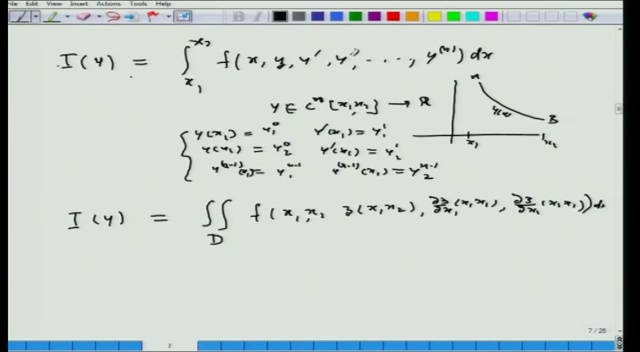 File Edit View Insert Actions Tools Help
I(y) = ∫_{x_1}^{x_2} f(x, y, y', y'', ..., y^{(n)}) dx
y ∈ C^n [x_1, x_2] → R
A
y(x)
B
x_1
x_2
y(x_1) = y_1^0 y'(x_1) = y_1'
y(x_2) = y_2^0 y'(x_2) = y_2'
y^{(n-1)}(x_1) = y_1^{n-1} y^{(n-1)}(x_2) = y_2^{n-1}
I(y) = ∬_D f(x_1, x_2 z(x_1, x_2), ∂z/∂x_1 (x_1, x_2), ∂z/∂x_2 (x_1 x_2)) dx
7 / 25
7